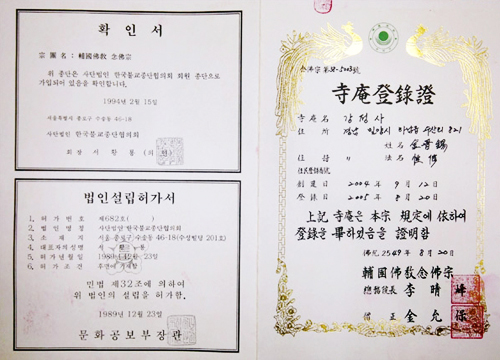 확인서
宗團名 : 輔國佛敎 念佛宗
위 종단은 사단법인 한국불교종단협의회 회원 종단으로
가입되어 있음을 확인합니다.
1994년 2월 15일
서울특별시 종로구 수송동 46-18
사단법인 한국불교종단협의회
회장 서황룡
법인설립허가서
1. 허가번호 제682호( )
2. 법인명칭 사단법인 한국불교종단협의회
3. 소재지 서울·종로구 수송동 46-18(수성빌딩 201호)
4. 대표자의성명 서
5. 허가년월일 1989년 12월 23일
6. 허가조건
민법 제32조에 의하여
위 법인의 설립을 허가함.
1989년 12월 23일
문화공보부장관
念佛宗 第 號
寺庵登錄證
寺庵名
住所 경남 밀양시 하남읍 수산리 821
姓名 金
住持 〃 法名
住民登錄番號
創建日 2004年 9月 12日
登錄日 2005年 8月 20日
上記 寺庵은 本宗 規定에 依하여
登錄을 畢하였음을 證明함
佛紀 2549年 8月 20日
輔國佛敎念佛宗
總務院長 李晴峰
僧正 金允保